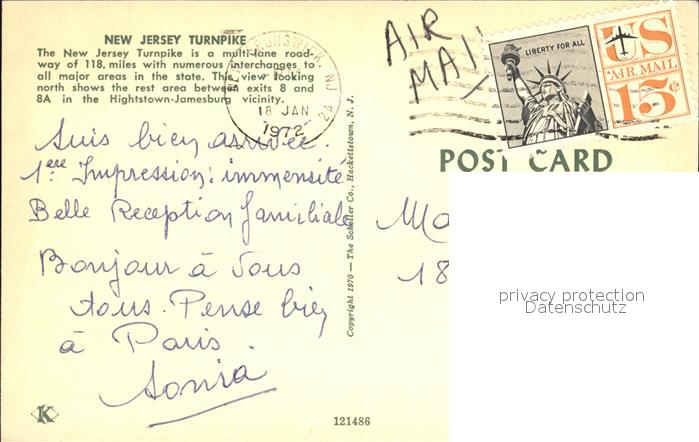 NEW JERSEY TURNPIKE
The New Jersey Turnpike is a multi-lane road-
way of 118 miles with numerous interchanges to
all major areas in the state. This view looking
north shows the rest area between exits 8 and
8A in the Hightstown-Jamesburg vicinity.
NJ
18 JAN
1972
AIR
MAIL
LIBERTY FOR ALL
US
AIR MAIL
15¢
POST CARD
Suis bien arrivée.
1ere Impression: immensite
Belle Reception familiale
Bonjour à Vous
tous. Pense bien
à Paris.
Sonia
Copyright 1970 — The Scheller Co., Hackettstown, N. J.
Mo
18
privacy protection
Datenschutz
K
121486